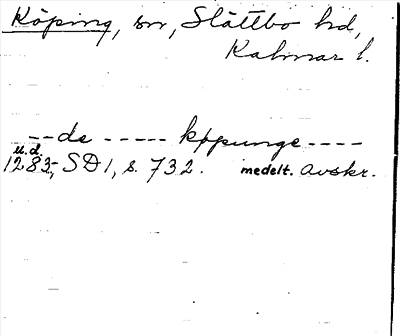 Köping, sn, Slättbo hd,
Kalmar l.
--de ----- køpunge----
u.d.
1283, SD 1, s. 732. medelt. avskr.